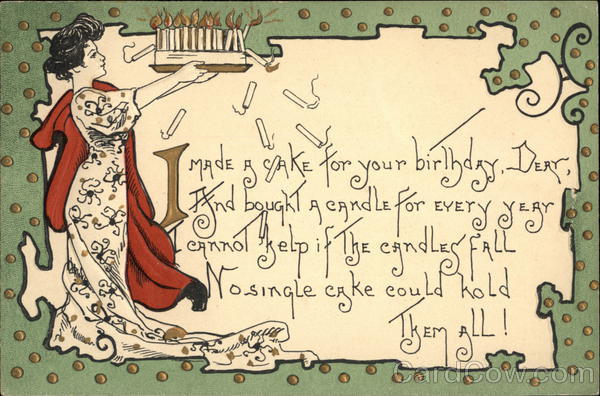 I made a cake for your birthday, Dear,
And bought a candle for every year
I cannot help if the candles fall
No single cake could hold
Them all!
CardCow.com